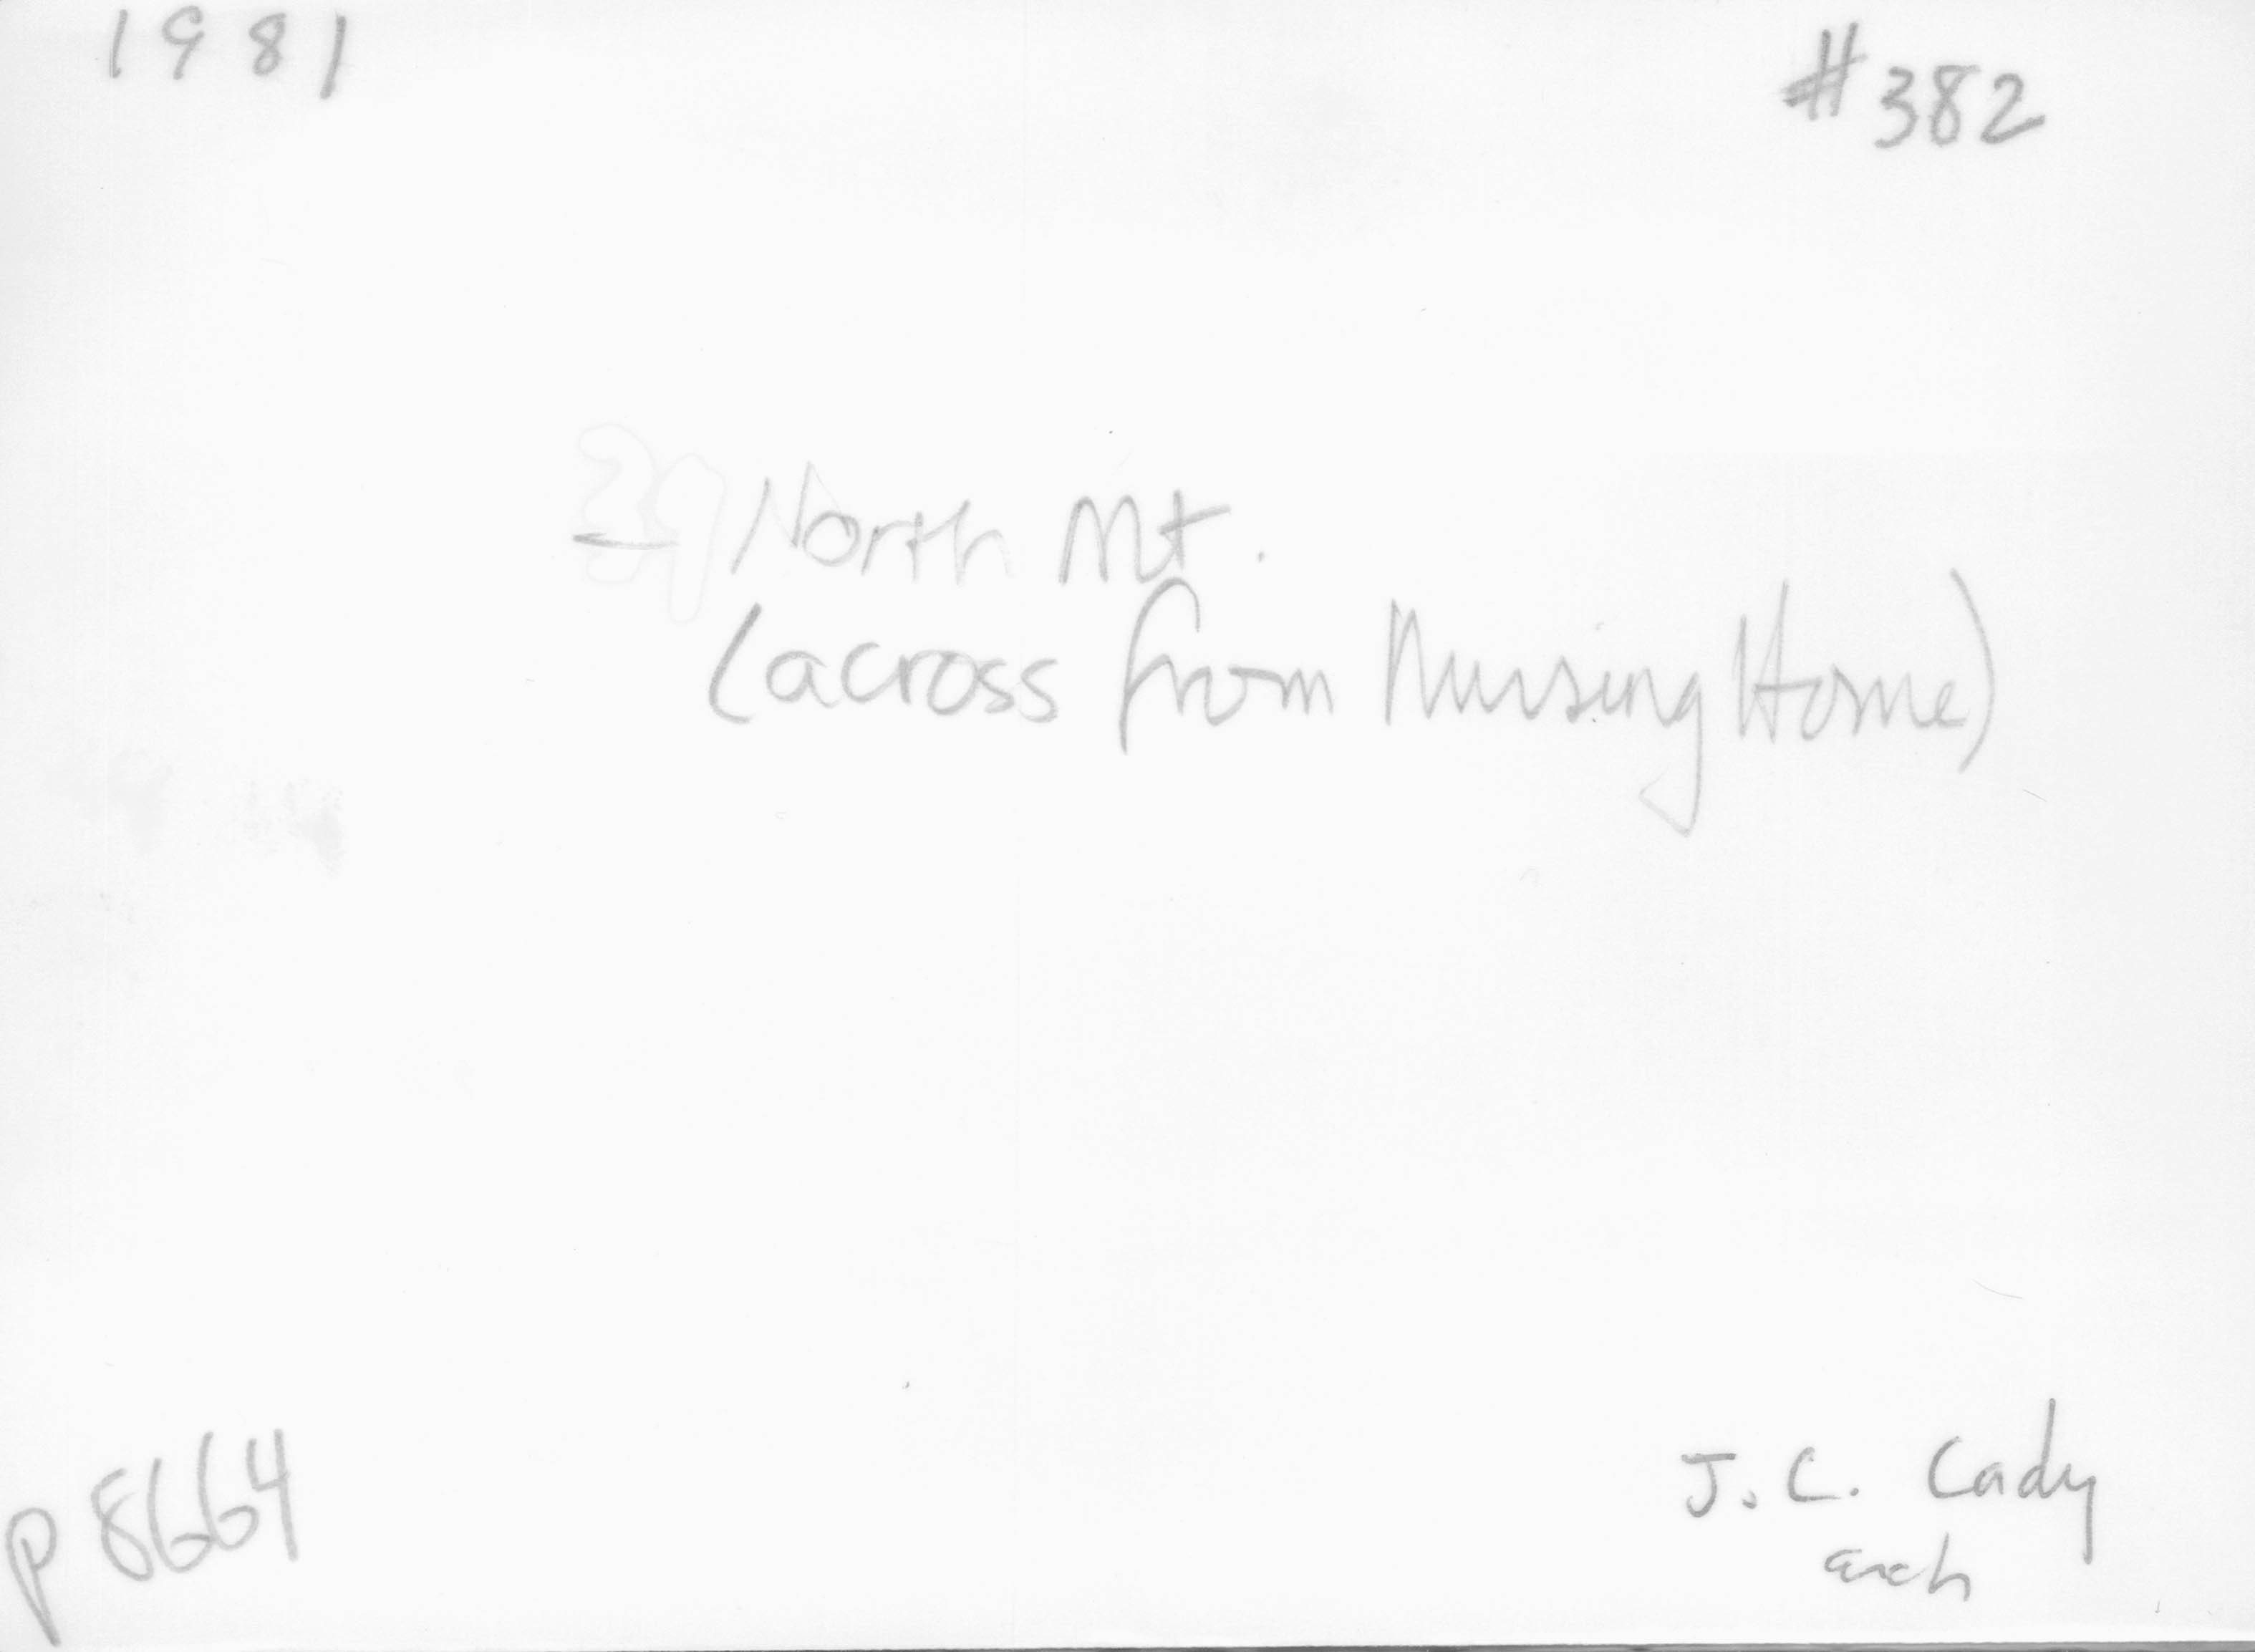 1981
#382
29 North Mt.
(across from Nursing Home)
P 8664
J. C. Cady
arch